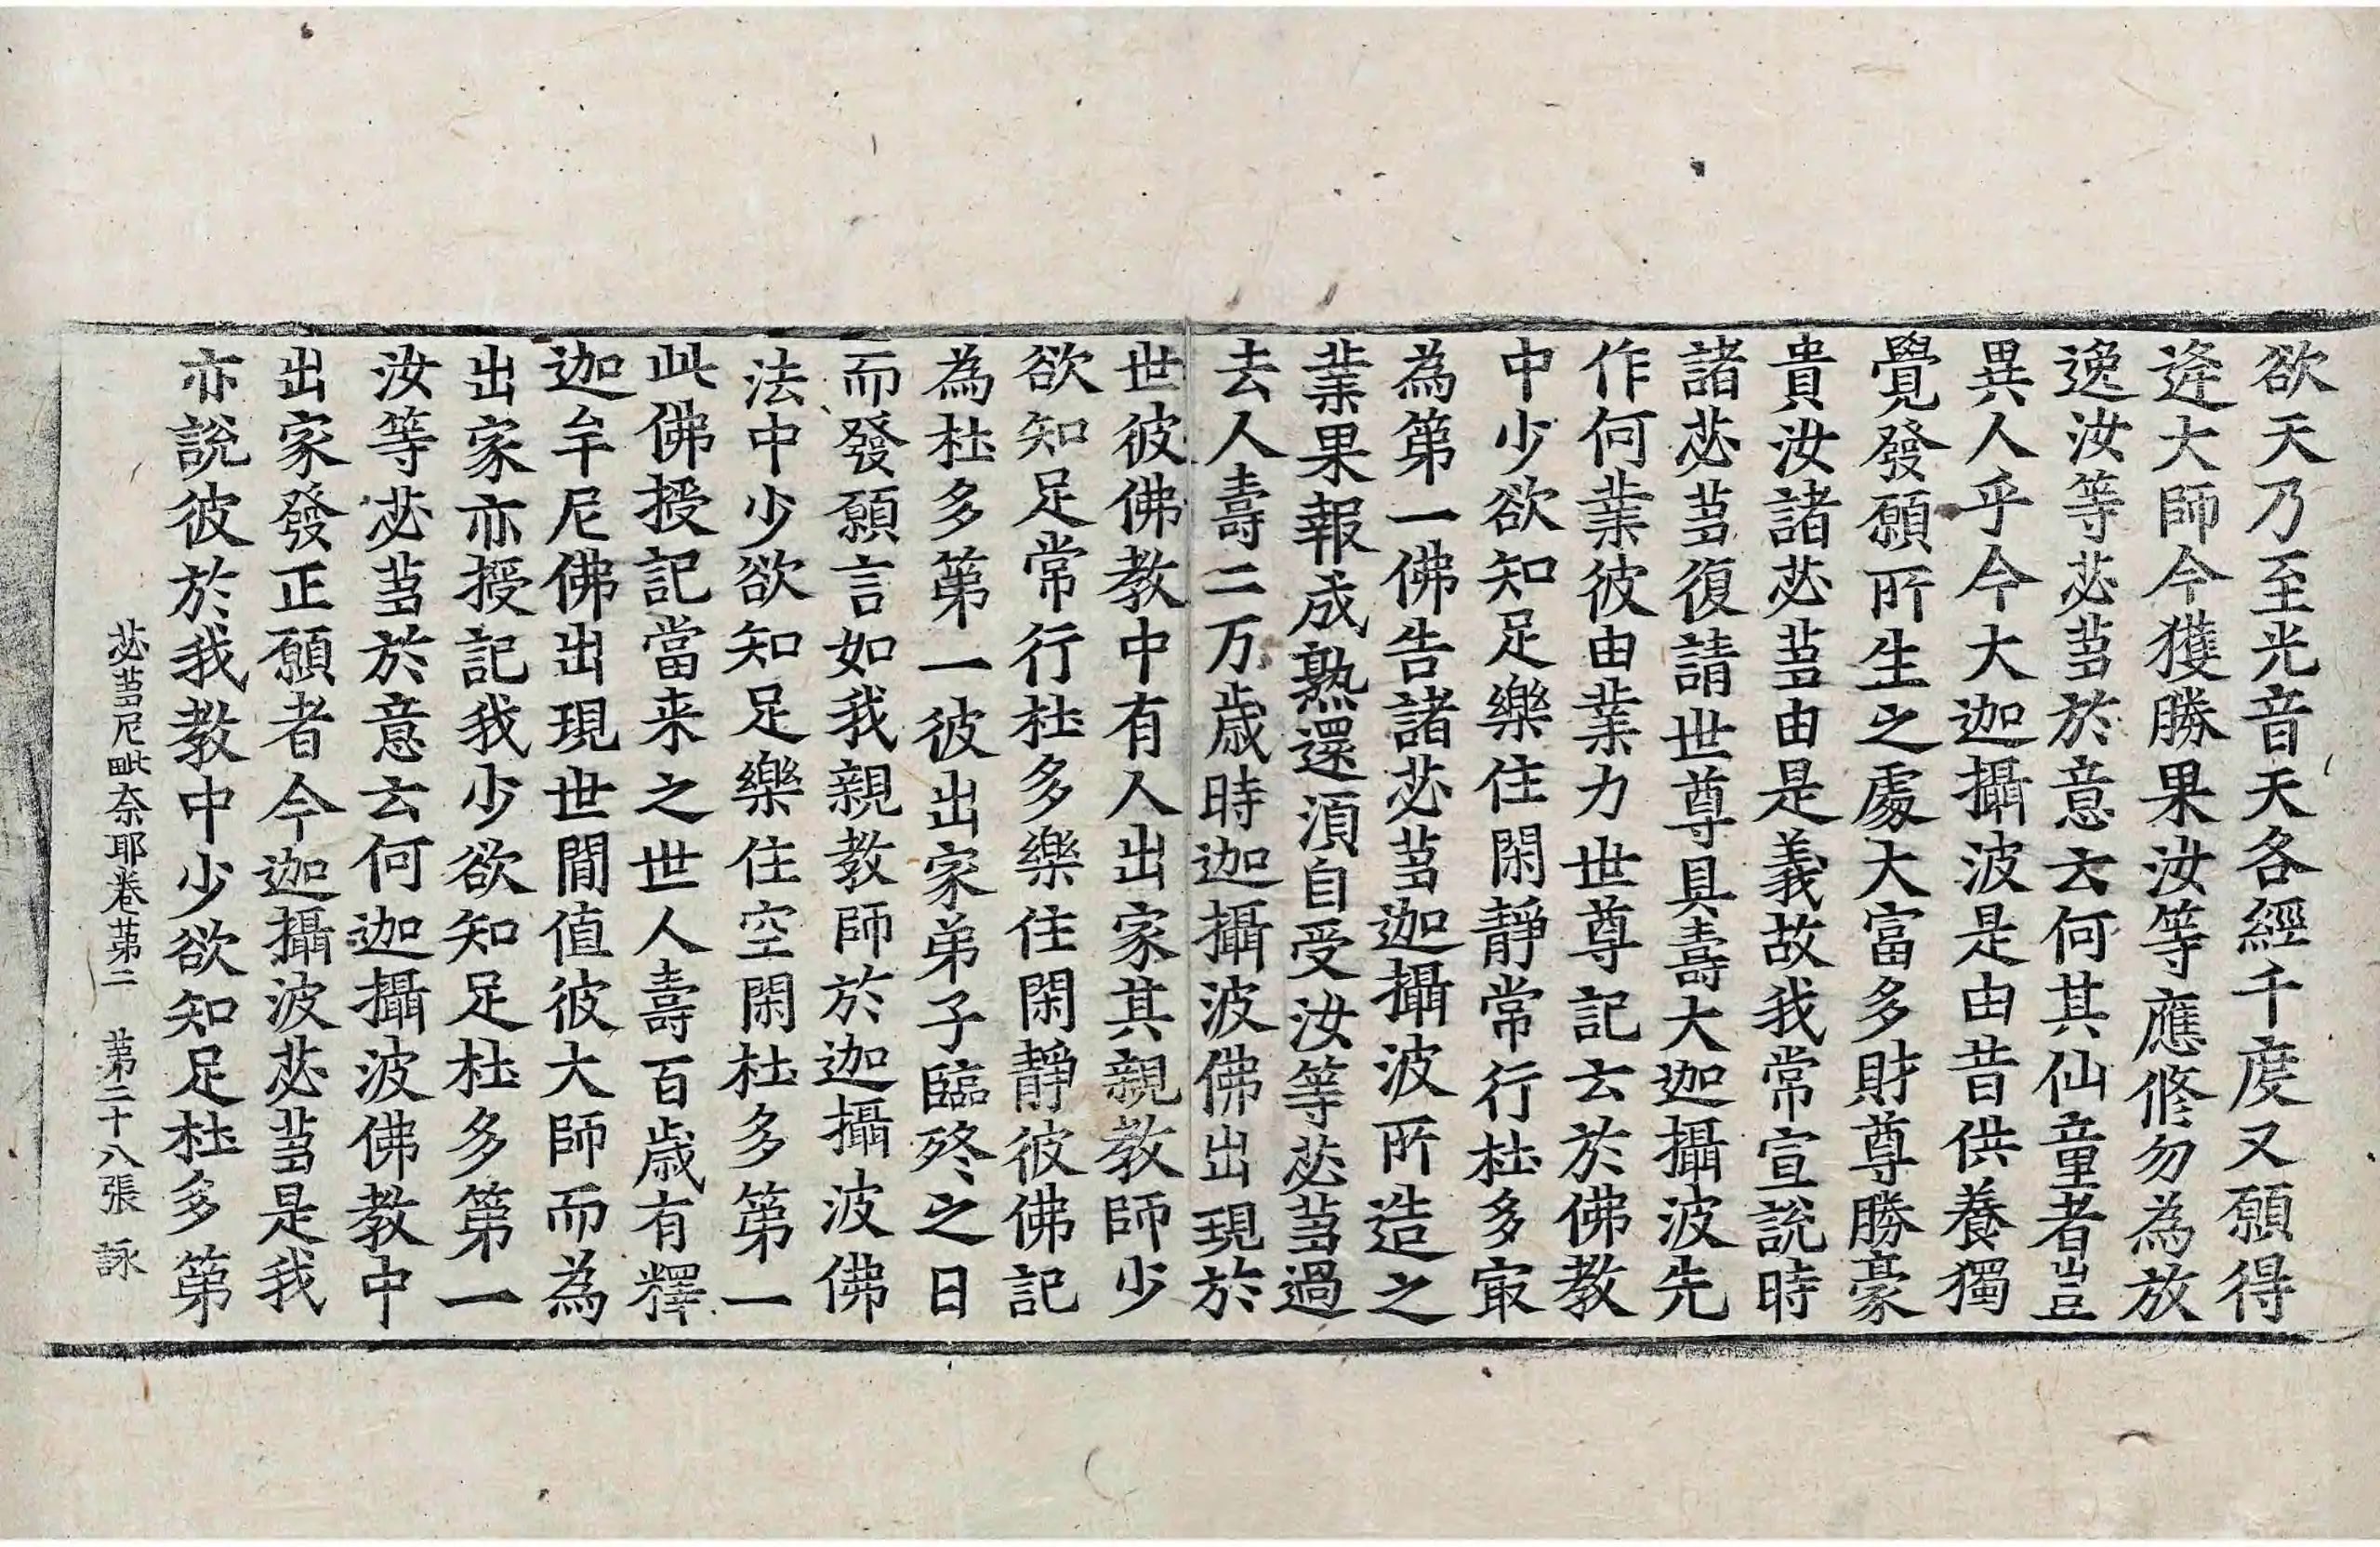 欲天乃至光音天各經千度又願得
逄大師今獲勝果汝等應修勿為放
逸汝等苾蒭於意云何其仙童者豈
異人乎今大迦攝波是由昔供養獨
覺發願所生之處大富多財尊勝豪
貴汝諸苾蒭由是義故我常宣說時
諸苾蒭復請世尊具壽大迦攝波先
作何業彼由業力世尊記云於佛教
中少欲知足樂住閑靜常行杜多㝡
為第一佛告諸苾蒭迦攝波所造之
業果報成熟還湏自受汝等苾蒭過
去人壽二万歲時迦攝波佛出現於
世彼佛教中有人出家其親教師少
欲知足常行杜多樂住閑靜彼佛記
為杜多第一彼出家弟子臨終之日
而發願言如我親教師於迦攝波佛
法中少欲知足樂住空閑杜多第一
此佛授記當来之世人壽百歲有釋
迦牟尼佛出現世間值彼大師而為
出家亦授記我少欲知足杜多第一
汝等苾蒭於意云何迦攝波佛教中
出家發正願者今迦攝波苾蒭是我
亦說彼於我教中少欲知足杜多第
苾蒭尼毗奈耶卷第二　第二十八張　詠